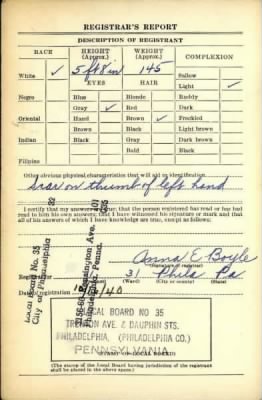 REGISTRAR'S REPORT
DESCRIPTION OF REGISTRANT
RACE HEIGHT (Approx.) WEIGHT (Approx.) COMPLEXION
White ✓ 5 ft 8 in 145 Sallow
EYES HAIR Light ✓
Negro Blue Blonde Ruddy
Gray ✓ Red Dark
Oriental Hazel Brown ✓ Freckled
Brown Black Light brown
Indian Black Gray Dark brown
Bald Black
Filipino
Other obvious physical characteristics that will aid in identification
Scar on thumb of left hand
I certify that my answers are true; that the person registered has read or has had
read to him his own answers; that I have witnessed his signature or mark and that
all of his answers of which I have knowledge are true, except as follows:
Local Board No. 35
City of Philadelphia
Philadelphia, Penna.
Anna E Boyle
(Signature of registrar)
Registrar for 31 Phila Pa.
(Ward) (City or county) (State)
Date of registration
LOCAL BOARD NO 35
TRENTON AVE. & DAUPHIN STS.
PHILADELPHIA, (PHILADELPHIA CO.)
PENNSYLVANIA
(STAMP OF LOCAL BOARD)
(The stamp of the Local Board having jurisdiction of the registrant
shall be placed in the above space.)